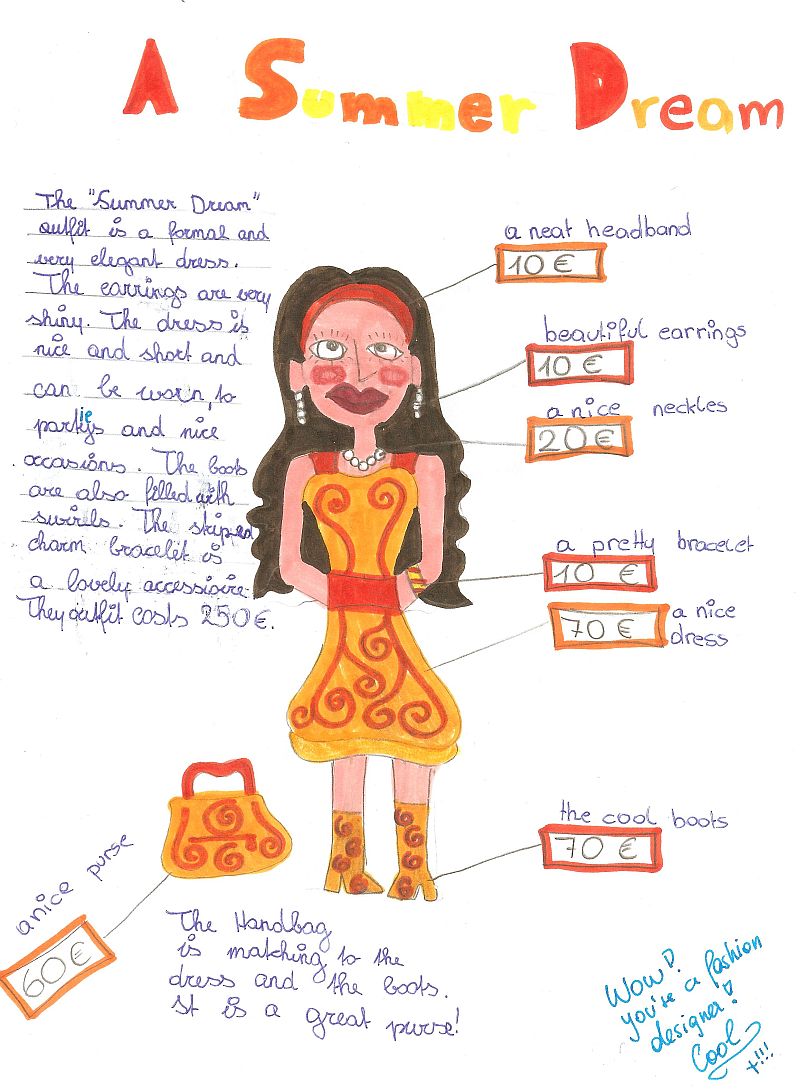 A Summer Dream
The "Summer Dream"
outfit is a formal and
very elegant dress.
The earrings are very
shiny. The dress is
nice and short and
can be worn, to
parties and nice
occasions. The boots
are also filled with
swirls. The striped
charm bracelet is
a lovely accessoire.
They outfit costs 250€.
a neat headband
10 €
beautiful earrings
10 €
a nice neckles
20 €
a pretty bracelet
10 €
70 €
a nice
dress
the cool boots
70 €
a nice purse
60 €
The Handbag
is matching to the
dress and the boots.
It is a great purse!
Wow!
you're a fashion
designer!
Cool
+!!!